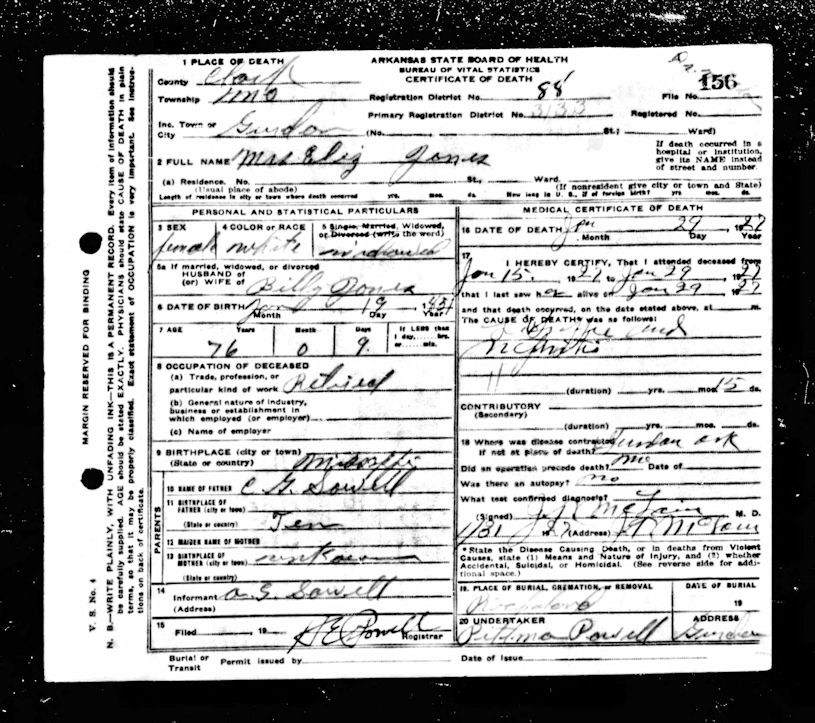 1 PLACE OF DEATH
ARKANSAS STATE BOARD OF HEALTH
BUREAU OF VITAL STATISTICS
CERTIFICATE OF DEATH
156
County Clark
Township
Registration District No. 88
File No.
Primary Registration District No. 3133
Registered No.
Inc. Town or
City Gurdon
(No. St.; Ward)
If death occurred in a
hospital or institution,
give its NAME instead
of street and number.
2 FULL NAME Mrs Eliz Jones
(a) Residence. No. St., Ward.
(Usual place of abode) (If nonresident give city or town and State)
Length of residence in city or town where death occurred yrs. mos. ds. How long in U. S., if of foreign birth? yrs. mos. ds.
PERSONAL AND STATISTICAL PARTICULARS
3 SEX
female
4 COLOR or RACE
white
5 Single, Married, Widowed,
or Divorced (write the word)
widowed
5a If married, widowed, or divorced
HUSBAND of
(or) WIFE of Billy Jones
6 DATE OF BIRTH Jan 19
Month Day Year
7 AGE Years Month Days If LESS than
1 day, hrs.
or min.
76 0 9.
8 OCCUPATION OF DECEASED
(a) Trade, profession, or
particular kind of work Retired
(b) General nature of industry,
business or establishment in
which employed (or employer)
(c) Name of employer
9 BIRTHPLACE (city or town)
(State or country)
PARENTS
10 NAME OF FATHER C G. Sowell
11 BIRTHPLACE OF
FATHER (city or town)
(State or country) Ten
12 MAIDEN NAME OF MOTHER
13 BIRTHPLACE OF
MOTHER (city or town) unknown
(State or country)
14
Informant O S. Sowell
(Address)
15
Filed 19 Registrar
Powell
Burial or
Transit Permit issued by Date of Issue
MEDICAL CERTIFICATE OF DEATH
16 DATE OF DEATH Jan 29, 1927
Month Day Year
17
I HEREBY CERTIFY, That I attended deceased from
Jan 15, 1927 to Jan 29 1927
that I last saw her alive on Jan 29 1927
and that death occurred, on the date stated above, at m.
The CAUSE OF DEATH* was as follows:
and
(duration) yrs. mos. 15 ds.
CONTRIBUTORY
(Secondary)
(duration) yrs. mos. ds.
18 Where was disease contracted
If not at place of death? Gurdon Ark
Did an operation precede death? no Date of
Was there an autopsy? no
What test confirmed diagnosis?
(Signed) McLain M. D.
1/31 1927 (Address) McLain
*State the Disease Causing Death, or in deaths from Violent
Causes, state (1) Means and Nature of Injury, and (2) whether
Accidental, Suicidal, or Homicidal. (See reverse side for addi-
tional space.)
19. PLACE OF BURIAL, CREMATION, or REMOVAL DATE OF BURIAL
19
20 UNDERTAKER ADDRESS
Powell Gurdon
V. S. No. 4
MARGIN RESERVED FOR BINDING
N. B.—WRITE PLAINLY, WITH UNFADING INK—THIS IS A PERMANENT RECORD. Every item of information should
be carefully supplied. AGE should be stated EXACTLY. PHYSICIANS should state CAUSE OF DEATH in plain
terms, so that it may be properly classified. Exact statement of OCCUPATION is very important. See instruc-
tions on back of certificate.